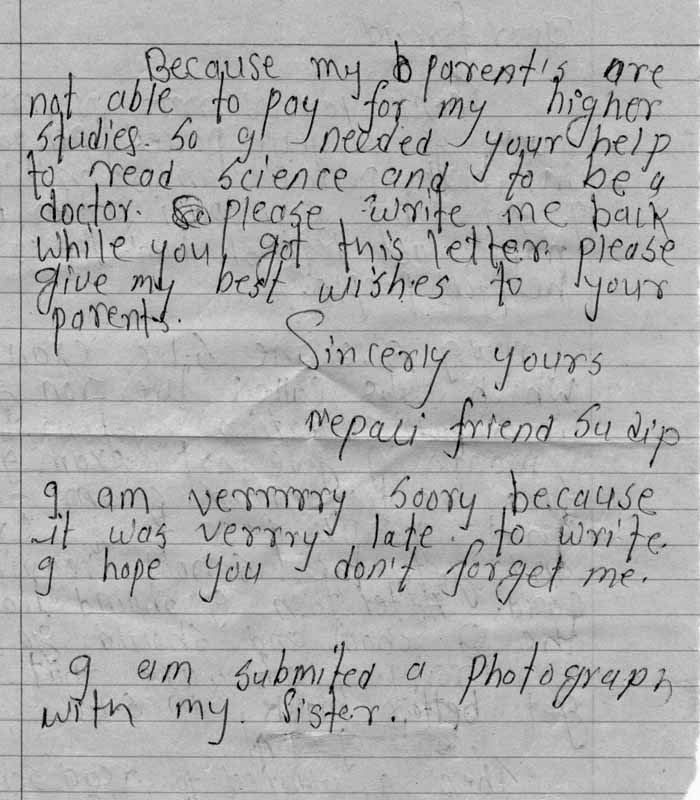 Because my parent's are
not able to pay for my higher
studies. So I needed your help
to read science and to be a
doctor. please write me back
while you got this letter. please
give my best wishes to your
parents.
Sincerly yours
Nepali friend Sudip
I am verrrrrry soory because
it was verrry late. to write.
I hope you don't forget me.
I am submited a photograph
with my. Sister..